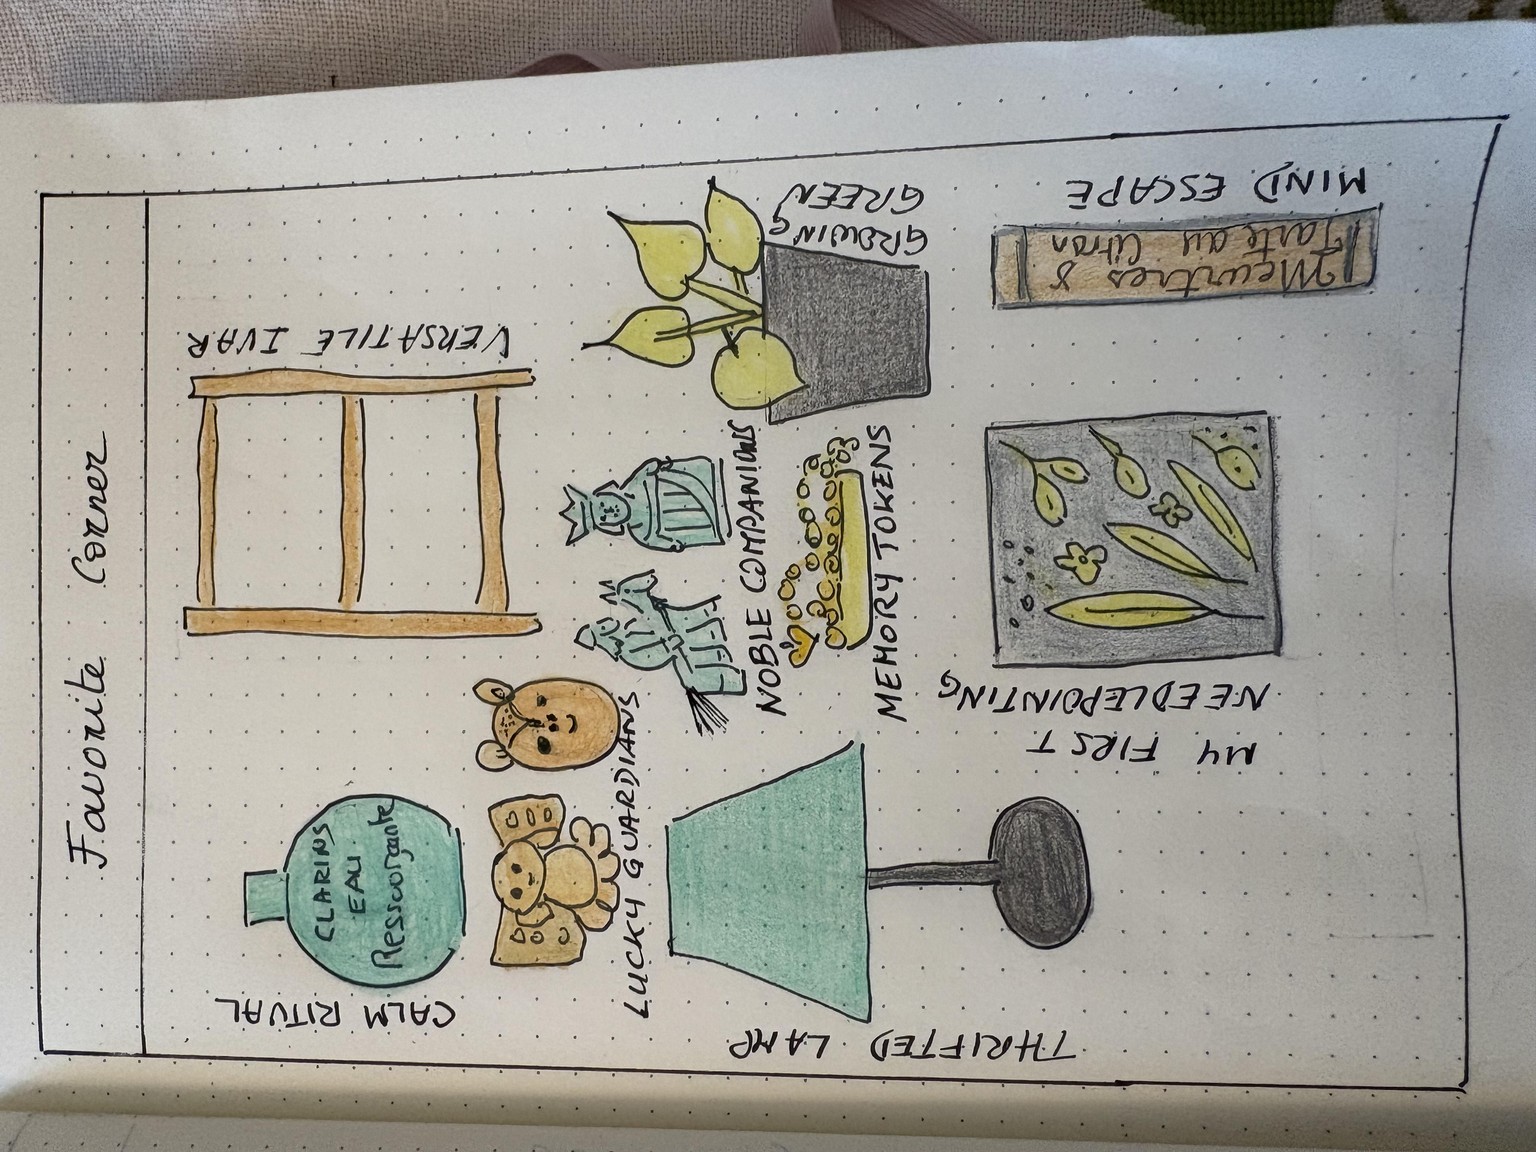 Favorite Corner
CALM RITUAL
CLARINS
EAU
Ressourçante
VERSATILE IVAR
LUCKY GUARDIANS
NOBLE COMPANIONS
GROWING
GREEN
MEMORY TOKENS
THRIFTED LAMP
MY FIRST
NEEDLEPOINTING
Meurtres &
Tarte au Citron
MIND ESCAPE